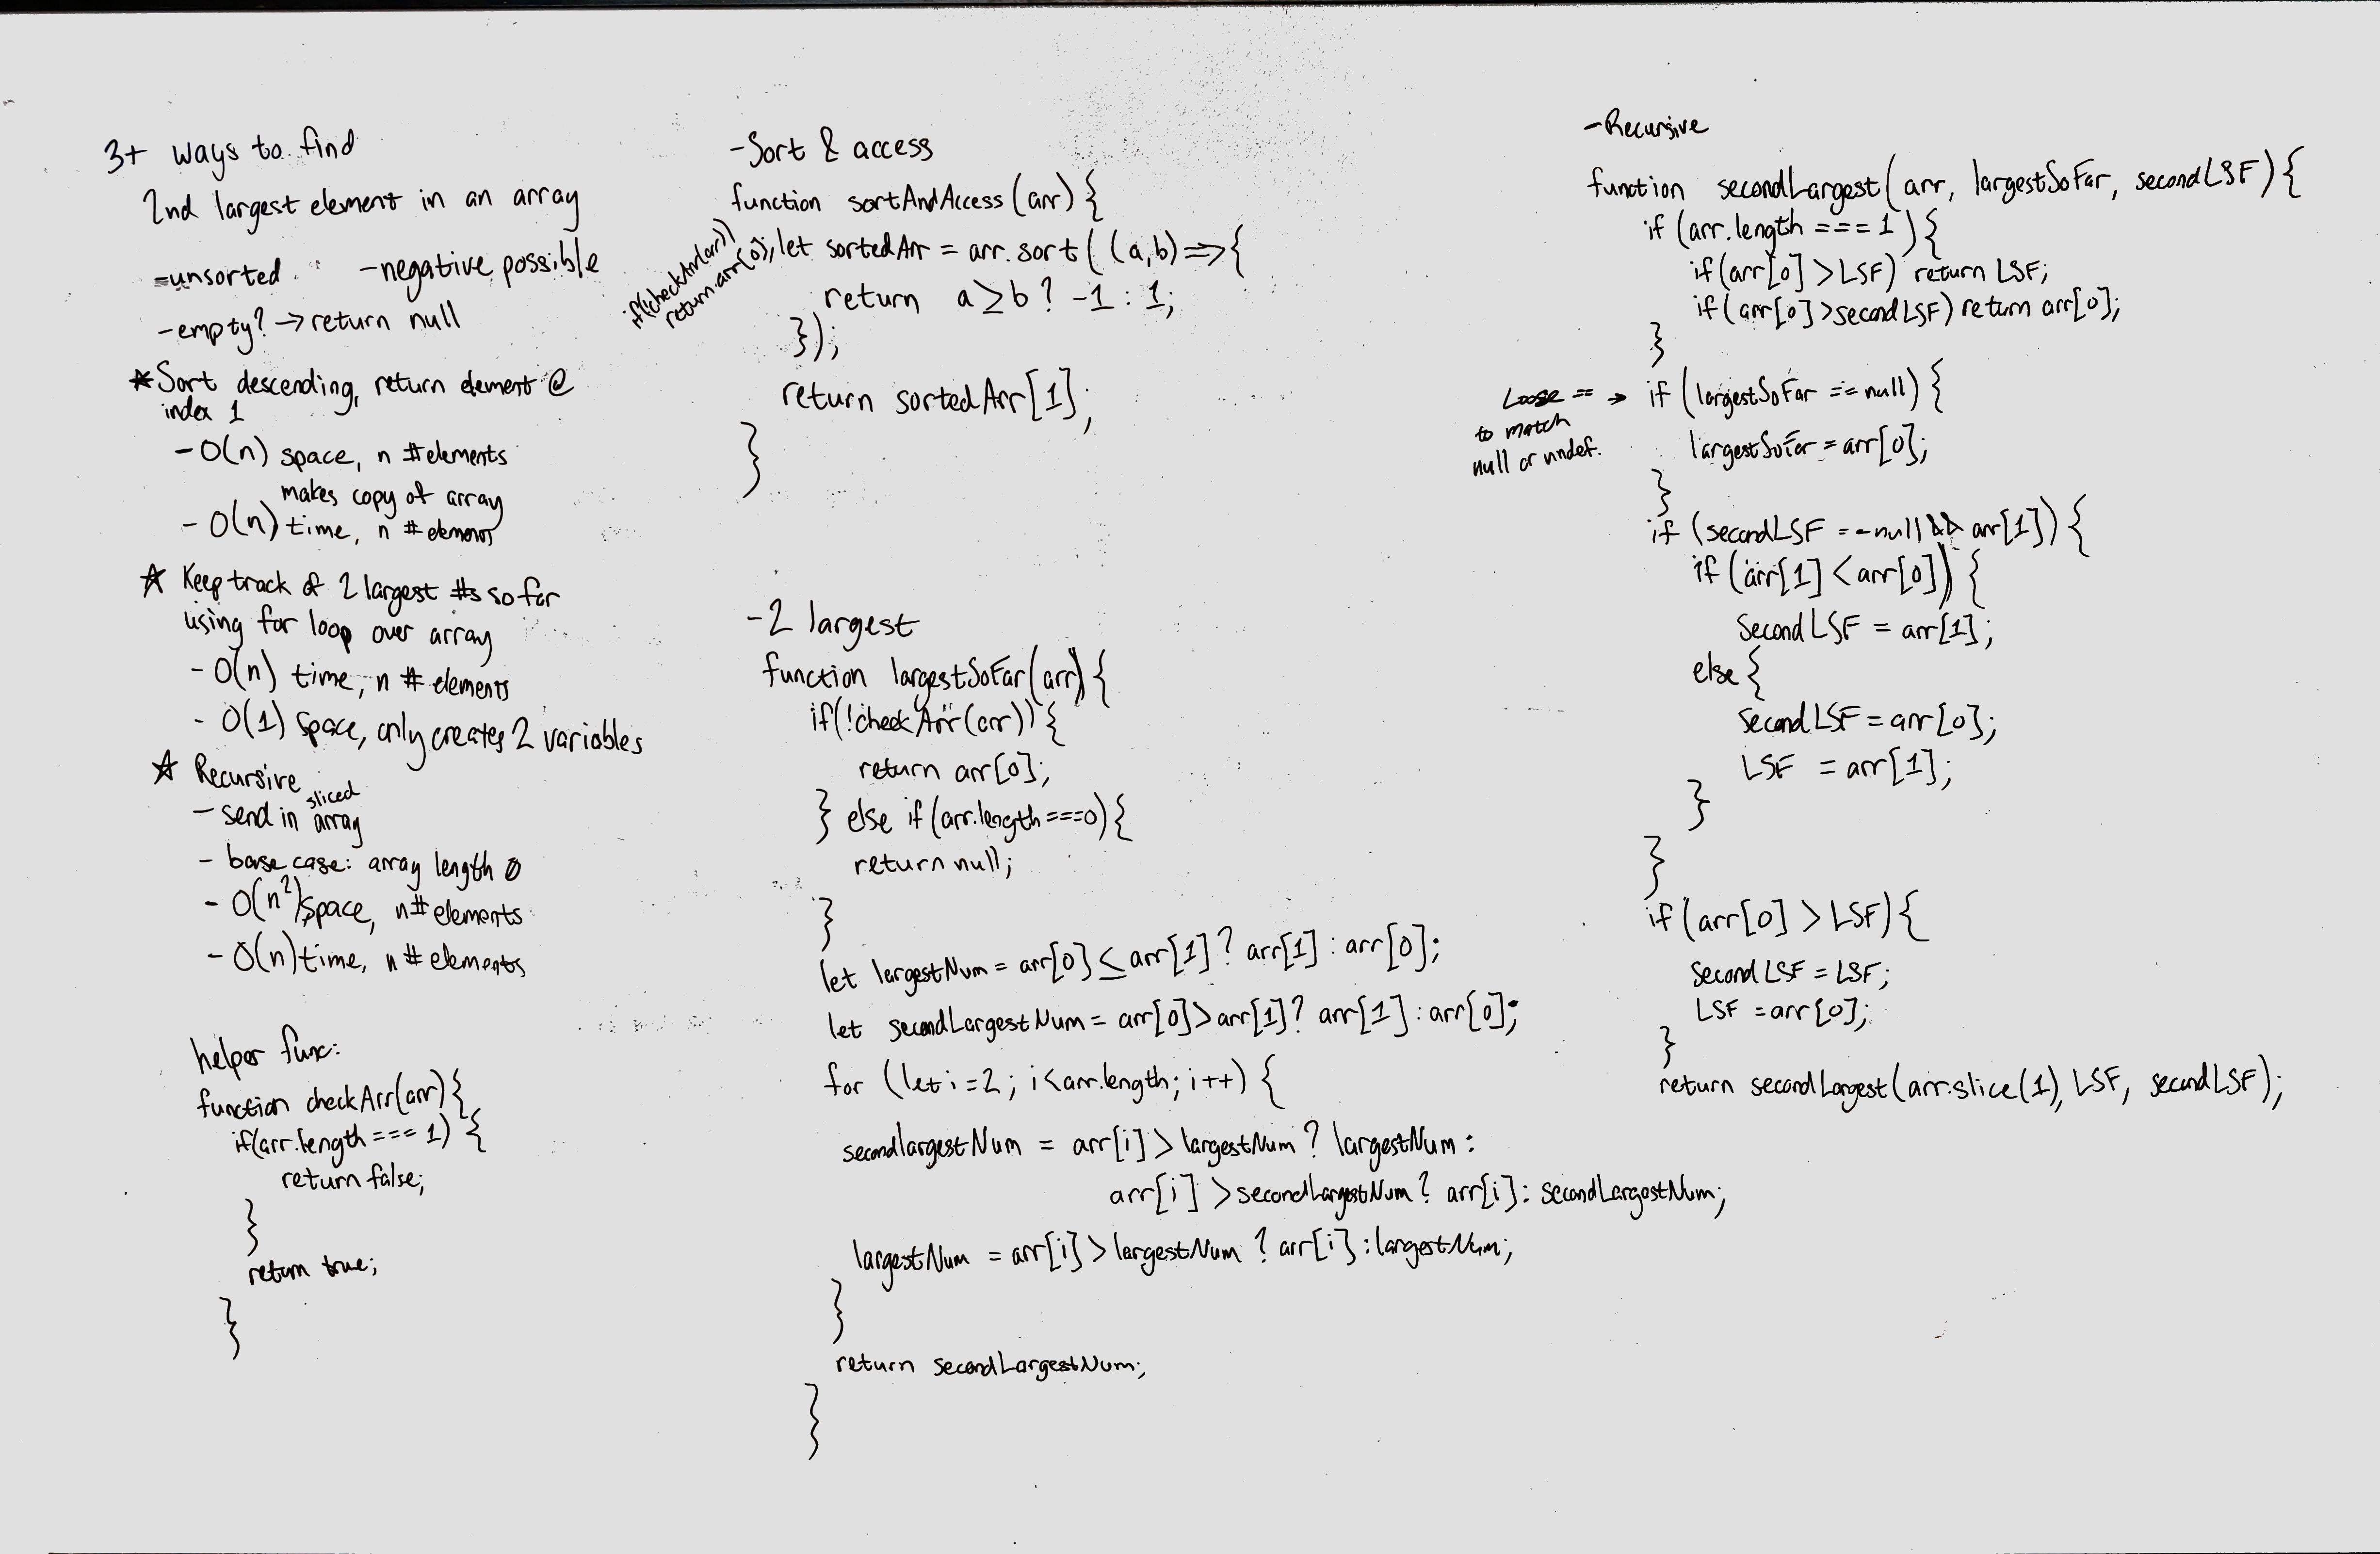 3+ ways to find
2nd largest element in an array
=unsorted -negative possible
-empty? → return null
*Sort descending, return element @
index 1
- O(n) space, n # elements
makes copy of array
- O(n) time, n # elements
☆ Keep track of 2 largest #s so far
using for loop over array
- O(n) time, n # elements
- O(1) space, only creates 2 variables
☆ Recursive
- send in sliced array
- base case: array length 0
- O(n²) space, n # elements
- O(n) time, n # elements
helper func:
function checkArr(arr){
if(arr.length === 1) {
return false;
}
return true;
}
-Sort & access
function sortAndAccess(arr){
if(checkArr(arr))
return arr[0];
let sortedArr = arr.sort((a,b)=>{
return a≥b? -1 : 1;
});
return sortedArr[1];
}
-2 largest
function largestSoFar(arr){
if(!checkArr(arr)){
return arr[0];
} else if(arr.length===0){
return null;
}
let largestNum = arr[0]≤arr[1]? arr[1] : arr[0];
let secondLargestNum = arr[0]>arr[1]? arr[1] : arr[0];
for (let i=2; i<arr.length; i++) {
secondlargestNum = arr[i]>largestNum? largestNum:
arr[i]>secondLargestNum? arr[i]: secondLargestNum;
largestNum = arr[i]>largestNum? arr[i]:largestNum;
}
return secondLargestNum;
}
-Recursive
function secondLargest(arr, largestSoFar, secondLSF){
if (arr.length === 1){
if(arr[0]>LSF) return LSF;
if(arr[0]>secondLSF) return arr[0];
}
Loose == →
to match
null or undef.
if (largestSoFar ==null){
largestSoFar = arr[0];
}
if (secondLSF ==null && arr[1]){
if(arr[1]<arr[0]){
secondLSF = arr[1];
else{
secondLSF = arr[0];
LSF = arr[1];
}
}
if(arr[0] > LSF){
secondLSF = LSF;
LSF = arr[0];
}
return secondLargest(arr.slice(1), LSF, secondLSF);